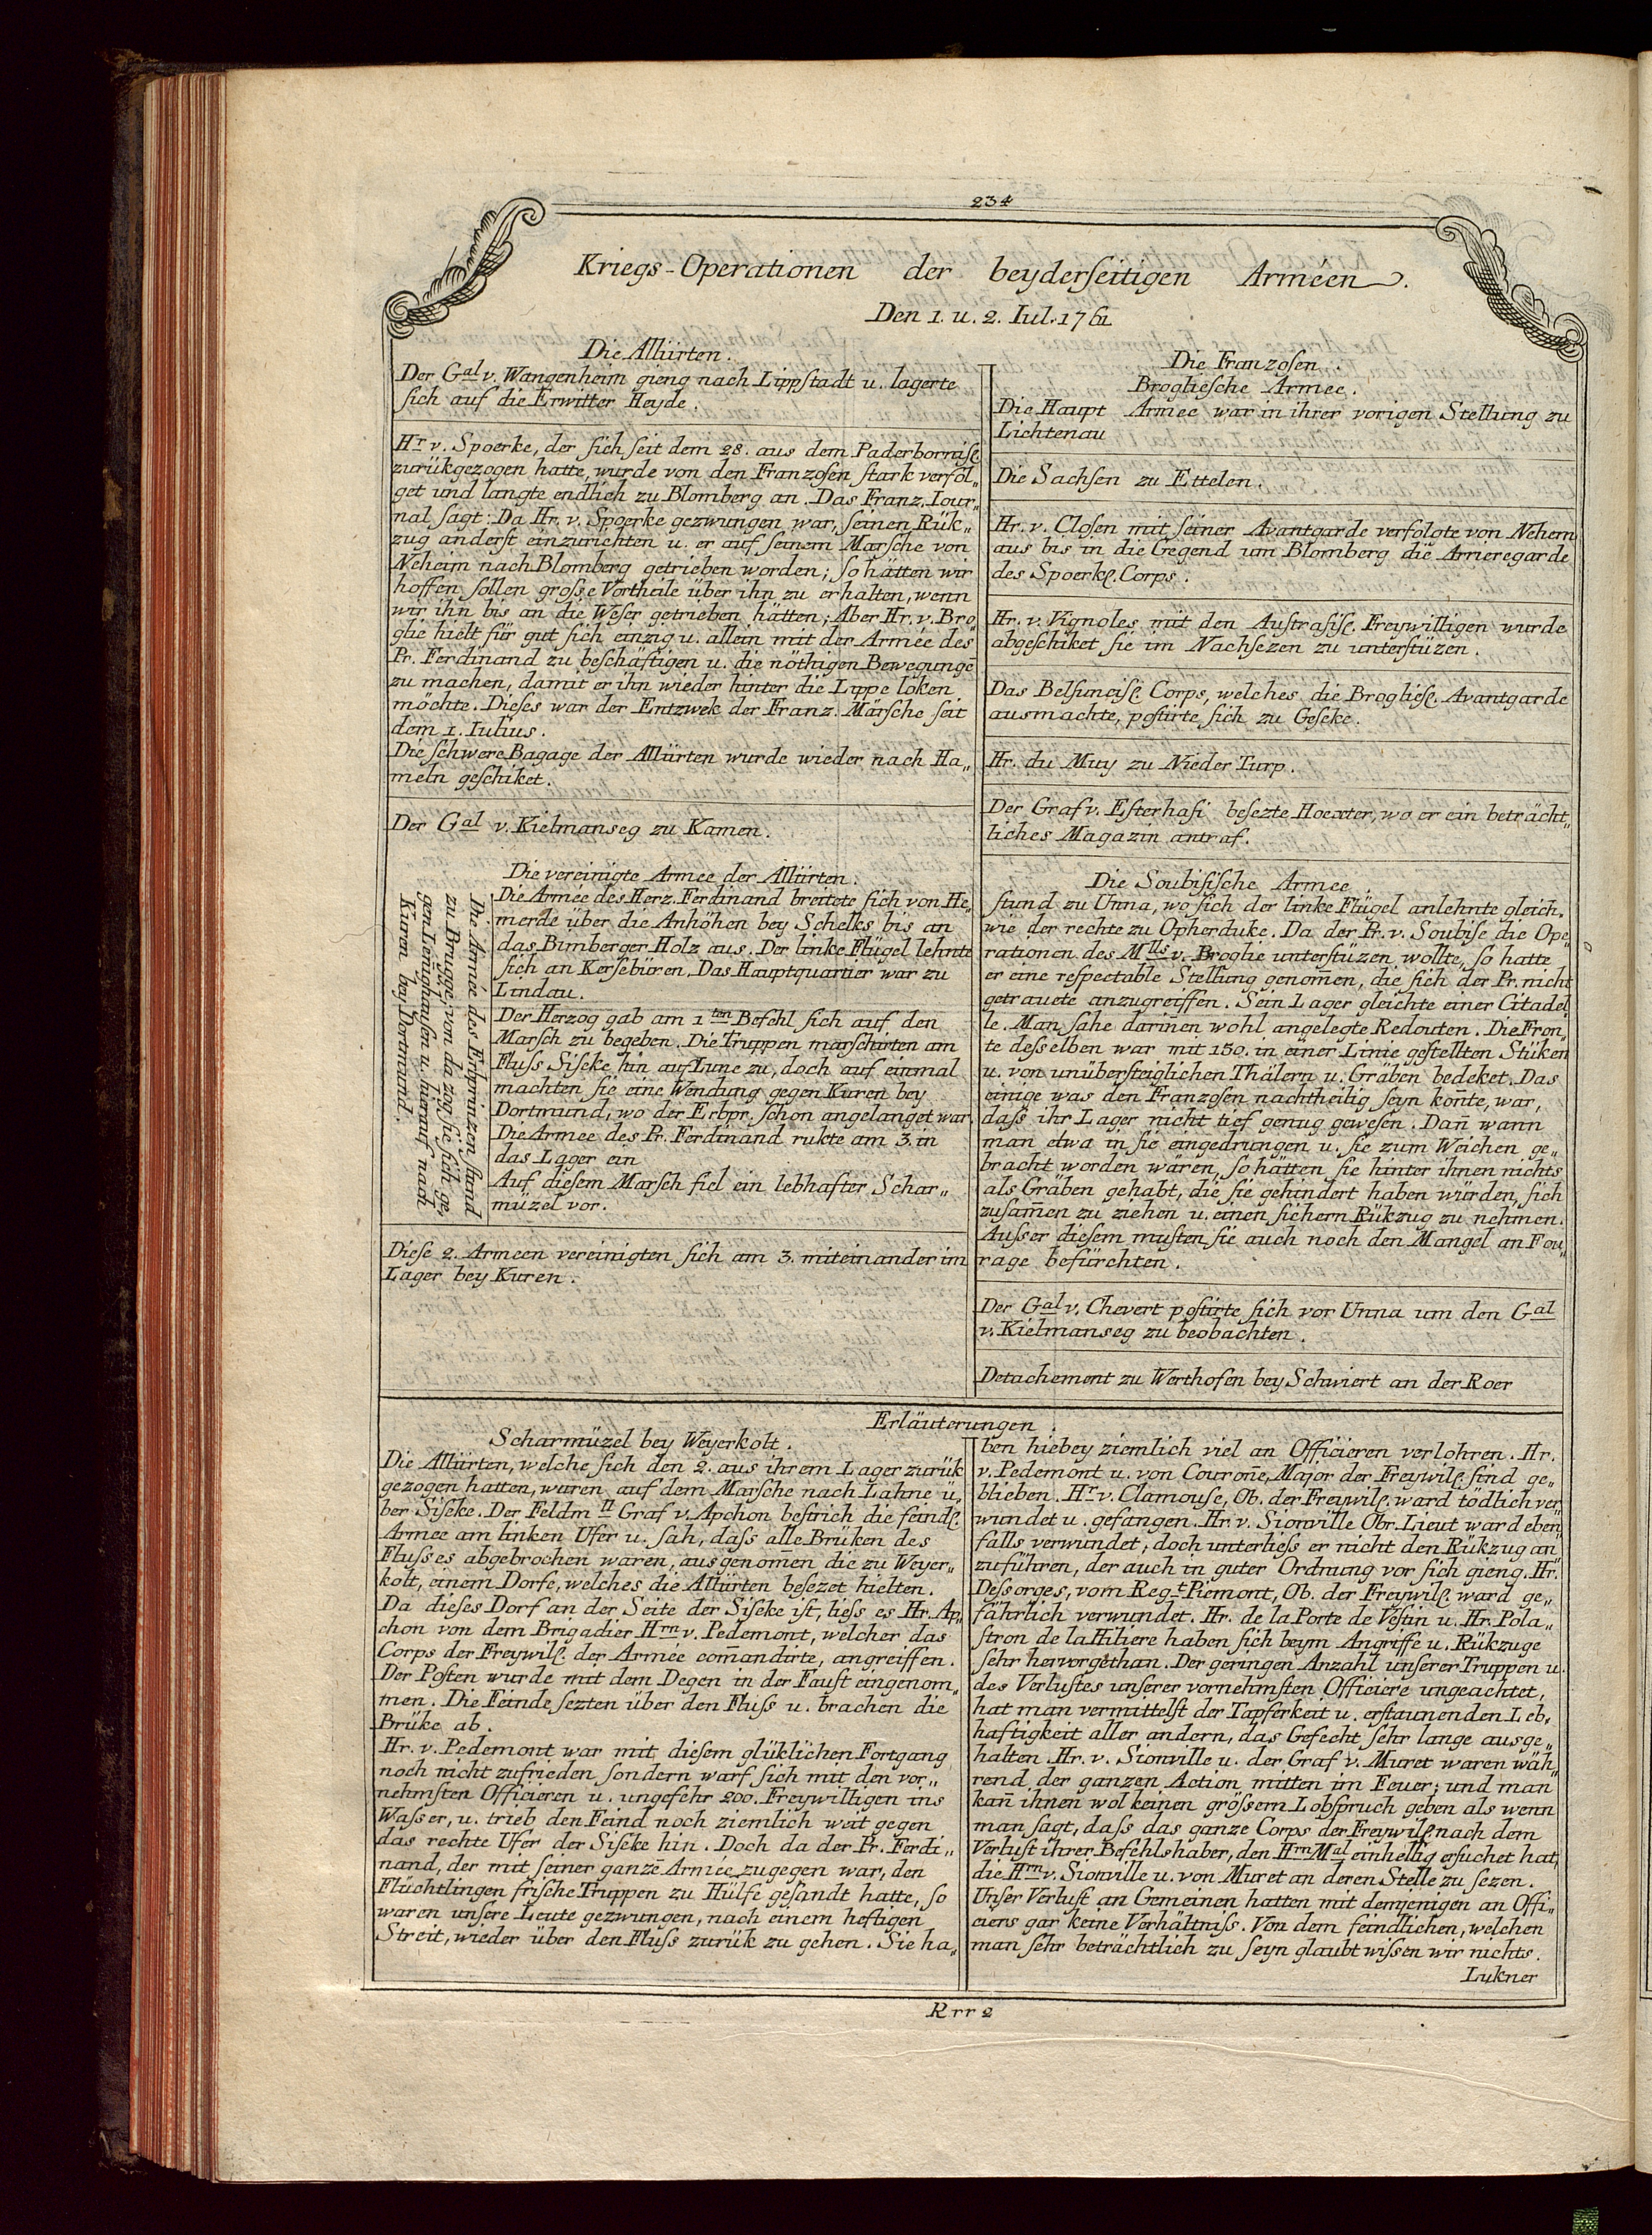 234
Kriegs-Operationen der beyderſeitigen Arméen.
Den 1. u. 2. Iul. 1761
Die Alliirten.
Der Gal v. Wangenheim gieng nach Lippſtadt u. lagerte
ſich auf die Erwitter Heyde.
Hr v. Spoerke, der ſich ſeit dem 28. aus dem Paderborniſc
zurükgezogen hatte, wurde von den Franzoſen ſtark verfol„
get und langte endlich zu Blomberg an. Das Franz. Iour„
nal ſagt: Da Hr. v. Spoerke gezwungen war, ſeinen Rük„
zug anderſt einzurichten u. er auf ſeinem Marſche von
Neheim nach Blomberg getrieben worden; ſo hätten wir
hoffen ſollen groſse Vortheile über ihn zu erhalten, wenn
wir ihn bis an die Weſer getrieben hätten; Aber Hr. v. Bro„
glie hielt für gut ſich einzig u. allein mit der Armée des
Pr. Ferdinand zu beſchäftigen u. die nöthigen Bewegungē
zu machen, damit er ihn wieder hinter die Lippe loken
möchte. Dieſes war der Entzwek der Franz. Märſche ſeit
dem 1. Iulius.
Die ſchwere Bagage der Alliirten wurde wieder nach Ha„
meln geſchiket.
Der Gal v. Kielmanseg zu Kamen.
Die vereinigte Armee der Alliirten.
Die Armée des Erbprinzen ſtund
zu Brügge; von da zog ſie ſich ge„
gen Lenighauſen u. hierauf nach
Kuren bey Dortmund.
Die Armée des Herz. Ferdinand breitete ſich von He„
merde über die Anhöhen bey Schelks bis an
das Bimberger Holz aus. Der linke Flügel lehnte
ſich an Kerſebüren. Das Hauptquartier war zu
Lindau.
Der Herzog gab am 1ten Befehl ſich auf den
Marſch zu begeben. Die Truppen marſchirten am
Fluſs Siſeke hin auf Lune zu, doch auf einmal
machten ſie eine Wendung gegen Kuren bey
Dortmund, wo der Erbpr. ſchon angelanget war.
Die Armee des Pr. Ferdinand rukte am 3. in
das Lager ein
Auf dieſem Marſch fiel ein lebhafter Schar„
müzel vor.
Dieſe 2. Armeen vereinigten ſich am 3. miteinander im
Lager bey Kuren.
Die Franzoſen.
Broglieſche Armee.
Die Haupt Armee war in ihrer vorigen Stellung zu
Lichtenau
Die Sachſen zu Ettelen.
Hr. v. Cloſen mit ſeiner Avantgarde verfolgte von Nehem
aus bis in die Gegend um Blomberg die Arrieregarde
des Spoerkſ. Corps.
Hr. v. Vignoles mit den Auſtraſiſ. Freywilligen wurde
abgeſchiket ſie im Nachſezen zu unterſtüzen.
Das Belſunciſ. Corps, welches die Broglieſ. Avantgarde
ausmachte, poſtirte ſich zu Geſeke.
Hr. du Muy zu Nieder Turp.
Der Graf v. Eſterhaſi beſezte Hoexter, wo er ein beträcht„
liches Magazin antraf.
Die Soubiſiſche Armee.
ſtund zu Unna, wo ſich der linke Flügel anlehnte gleich„
wie der rechte zu Opherduke. Da der Pr. v. Soubiſe die Ope„
rationen des Mlls v. Broglie unterſtüzen wollte, ſo hatte
er eine reſpectable Stellung genom̄en, die ſich der Pr. nicht
getrauete anzugreiffen. Sein Lager gleichte einer Citadel„
le. Man ſahe dariñen wohl angelegte Redouten. Die Fron„
te desſelben war mit 150. in einer Linie geſtellten Stüken
u. von unüberſteiglichen Thälern u. Gräben bedeket. Das
einige was den Franzoſen nachtheilig ſeyn koñte, war,
daſs ihr Lager nicht tief genug geweſen. Dañ wann
man etwa in ſie eingedrungen u. ſie zum Weichen ge„
bracht worden wären, ſo hätten ſie hinter ihnen nichts
als Gräben gehabt, die ſie gehindert haben würden, ſich
zuſam̄en zu ziehen u. einen ſichern Rükzug zu nehmen.
Auſser dieſem muſten ſie auch noch den Mangel an Fou„
rage befürchten.
Der Gal v. Chevert poſtirte ſich vor Unna um den Gal
v. Kielmanseg zu beobachten.
Detachement zu Werthofen bey Schwiert an der Roer
Erläuterungen.
Scharmüzel bey Weyerkolt.
Die Alliirten, welche ſich den 2. aus ihrem Lager zurük
gezogen hatten, waren auf dem Marſche nach Lahne ü„
ber Siſeke. Der Feldm ll Graf v. Apchon beſtrich die feindſ.
Armee am linken Ufer u. ſah, daſs alle Brüken des
Fluſses abgebrochen waren, ausgenom̄en die zu Weyer„
kolt, einem Dorfe, welches die Alliirten beſezet hielten.
Da dieſes Dorf an der Seite der Siſeke iſt, lieſs es Hr. Ap„
chon von dem Brigadier Hrn v. Pedemont, welcher das
Corps der Freywilſ. der Armée com̄andirte, angreiffen.
Der Poſten wurde mit dem Degen in der Fauſt eingenom„
men. Die Feinde ſezten über den Fluſs u. brachen die
Brüke ab.
Hr. v. Pedemont war mit dieſem glüklichen Fortgang
noch nicht zufrieden ſondern warf ſich mit den vor„
nehmſten Officieren u. ungefehr 200. Freywilligen ins
Waſser, u. trieb den Feind noch ziemlich weit gegen
das rechte Ufer der Siſeke hin. Doch da der Pr. Ferdi„
nand, der mit ſeiner ganzē Armée zugegen war, den
Flüchtlingen friſche Truppen zu Hülfe geſandt hatte, ſo
waren unſere Leute gezwungen, nach einem heftigen
Streit, wieder über den Fluſs zurük zu gehen. Sie ha„
ben hiebey ziemlich viel an Officieren verlohren. Hr.
v. Pedemont u. von Couroñe, Major der Freywilſ. ſind ge„
blieben. Hr v. Clamouſe, Ob. der Freywilſ. ward tödlich ver„
wundet u. gefangen. Hr. v. Sionville Obr. Lieut ward eben„
falls verwundet, doch unterlieſs er nicht den Rükzug an„
zuführen, der auch in guter Ordnung vor ſich gieng. Hr.
Desſorges, vom Regt Piemont, Ob. der Freywilſ. ward ge„
fährlich verwundet. Hr. de la Porte de Veſtin u. Hr. Pola„
ſtron de la Hiliere haben ſich beym Angriffe u. Rükzuge
ſehr hervorgethan. Der geringen Anzahl unſerer Truppen u.
des Verluſtes unſerer vornehmſten Officiere ungeachtet,
hat man vermittelſt der Tapferkeit u. erſtaunenden Leb„
haftigkeit aller andern, das Gefecht ſehr lange ausge„
halten. Hr. v. Sionville u. der Graf v. Muret waren wäh„
rend der ganzen Action mitten im Feuer; und man
kañ ihnen wol keinen gröſsern Lobſpruch geben als wenn
man ſagt, daſs das ganze Corps der Freywilſ. nach dem
Verluſt ihrer Befehlshaber, den Hrn Mal einhellig erſuchet hat,
die Hrn v. Sionville u. von Muret an deren Stelle zu ſezen.
Unſer Verluſt an Gemeinen hatten mit demjenigen an Offi„
ciers gar keine Verhältniſs. Von dem feindlichen, welchen
man ſehr beträchtlich zu ſeyn glaubt wiſsen wir nichts.
Lukner
Rrr 2